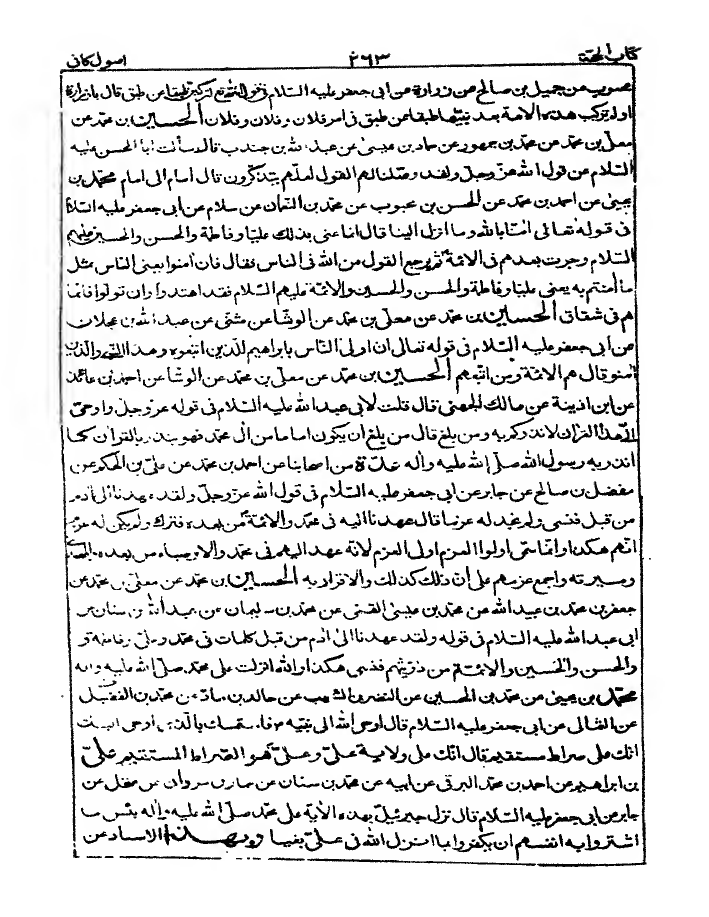 كتاب الحجة ٢٦٣ اصول كافى
محبوب عن جميل بن صالح عن زرارة عن ابى جعفر عليه السلام فى قوله تعالى لتركبن طبقا عن طبق قال يا زرارة
او لم تركب هذه الامة بعد نبيها طبقا عن طبق فى امر فلان وفلان وفلان الحسين بن محمد عن
معلى بن محمد عن محمد بن جمهور عن حماد بن عيسى عن عبد الله بن جندب قال سألت ابا الحسن عليه
السلام عن قول الله عز وجل ولقد وصلنا لهم القول لعلهم يتذكرون قال امام الى امام محمد بن
يحيى عن احمد بن محمد عن الحسن بن محبوب عن محمد بن النعمان عن سلام عن ابى جعفر عليه السلام
فى قوله تعالى امنا بالله وما انزل الينا قال انما عنى بذلك عليا وفاطمة والحسن والحسين عليهم
السلام وجرت بعدهم فى الائمة ثم يرجع القول من الله فى الناس فقال فان امنوا يعنى الناس بمثل
ما امنتم به يعنى عليا وفاطمة والحسن والحسين والائمة عليهم السلام فقد اهتدوا وان تولوا فانما
هم فى شقاق الحسين بن محمد عن معلى بن محمد عن الوشا عن مثنى عن عبد الله بن عجلان
عن ابى جعفر عليه السلام فى قوله تعالى ان اولى الناس بابراهيم للذين اتبعوه وهذا النبى والذين
امنو قال هم الائمة ومن اتبعهم الحسين بن محمد عن معلى بن محمد عن الوشا عن احمد بن عائذ
عن ابن اذينة عن مالك الجهنى قال قلت لابى عبد الله عليه السلام فى قوله عز وجل واوحى
الى هذا القران لانذركم به ومن بلغ قال من بلغ ان يكون اماما من ال محمد فهو ينذر بالقران كما
انذر به رسول الله صلى الله عليه واله عدة من اصحابنا عن احمد بن محمد عن على بن الحكم عن
مفضل بن صالح عن جابر عن ابى جعفر عليه السلام فى قول الله عز وجل ولقد عهدنا الى ادم
من قبل فنسى ولم نجد له عزما قال عهدنا اليه فى محمد والائمة من بعده فترك ولم يكن له عزم
انهم هكذا وانما سمى اولوا العزم اولى العزم لانه عهد اليهم فى محمد والاوصياء من بعده والمهدى
وسيرته واجمع عزمهم على ان ذلك كذلك والاقرار به الحسين بن محمد عن معلى بن محمد عن
جعفر بن محمد بن عبيد الله عن محمد بن عيسى القمى عن محمد بن سليمان عن عبد الله بن سنان عن
ابى عبد الله عليه السلام فى قوله ولقد عهدنا الى ادم من قبل كلمات فى محمد وعلى وفاطمة و
والحسن والحسين والائمة من ذريتهم فنسى هكذا والله انزلت على محمد صلى الله عليه واله
محمد بن يحيى عن محمد بن الحسين عن النضر بن شعيب عن خالد بن ماد عن محمد بن الفضيل
عن الثمالى عن ابى جعفر عليه السلام قال اوحى الله الى نبيه فاستمسك بالذى اوحى اليك
انك على صراط مستقيم قال انك على ولاية على وعلى هو الصراط المستقيم على
بن ابراهيم عن احمد بن محمد البرقى عن ابيه عن محمد بن سنان عن عمار بن مروان عن منخل عن
جابر عن ابى جعفر عليه السلام قال نزل جبرئيل بهذه الاية على محمد صلى الله عليه واله بئس ما
اشتروا به انفسهم ان يكفروا بما انزل الله فى على بغيا وبهذا الاسناد عن